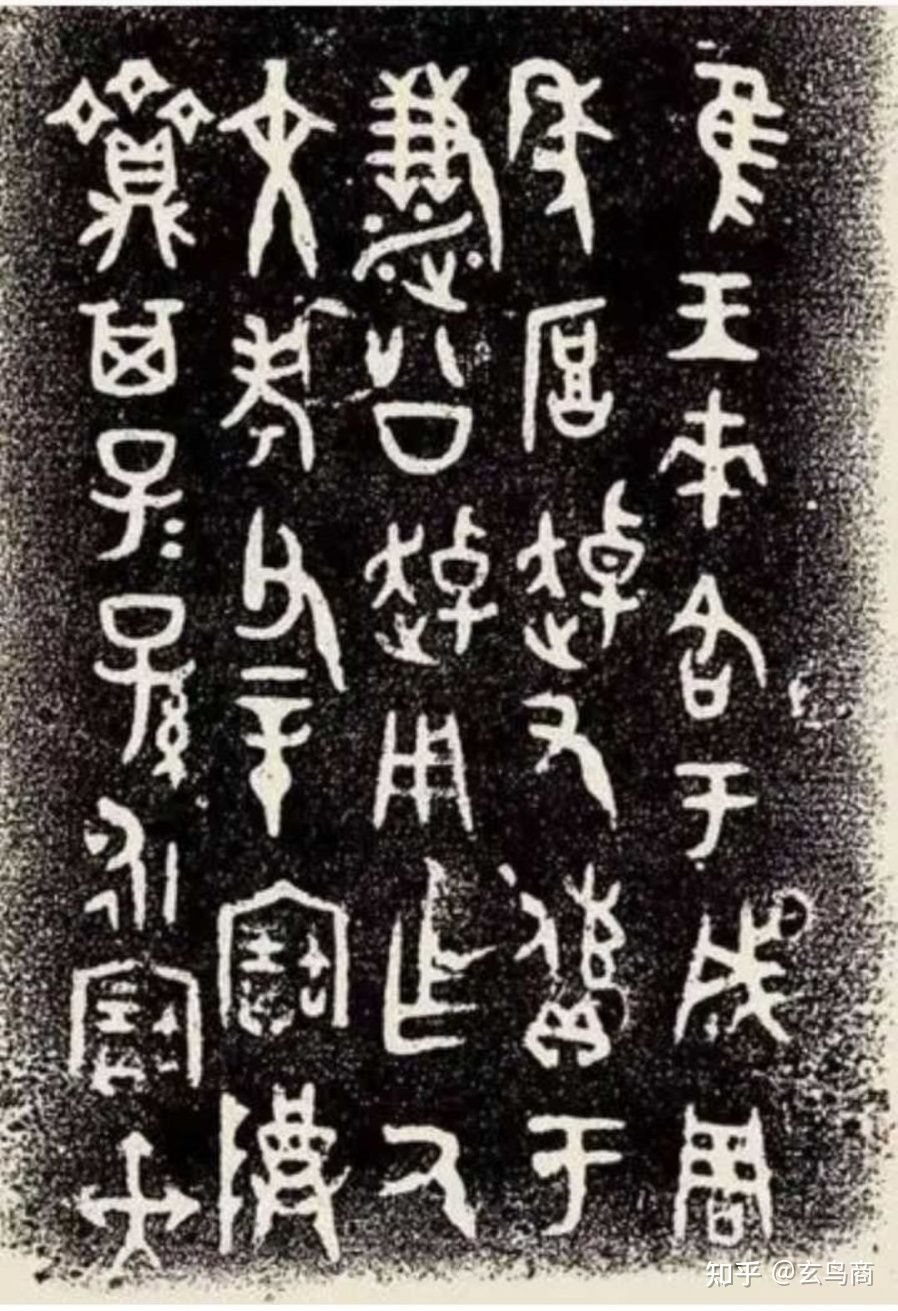 隹王來各于成周
年厚趠又償于
溓公趠用乍厥
文考父辛寶尊
齍其子=孫永寶朿
知乎 @玄鸟商